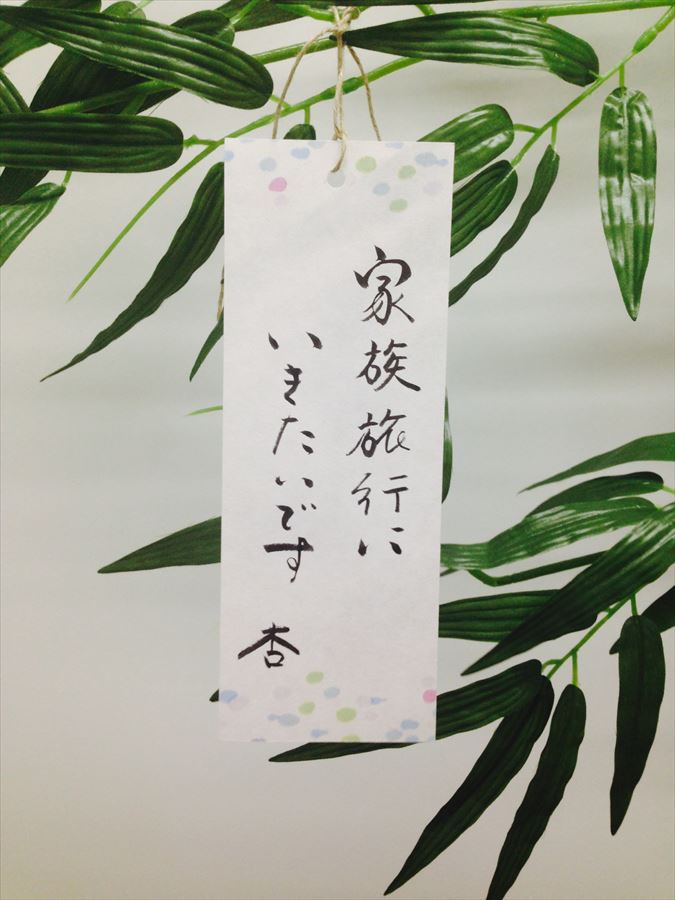 家族旅行に
いきたいです
杏